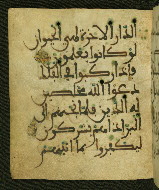 الدار الاخرة لهي الحيوان
لو كانوا يعلمون
فاذا ركبوا في الفلك
دعوا الله مخلصين
له الدين فلما نجىهم الى
البر اذا هم يشركون
ليكفروا بما اتينهم